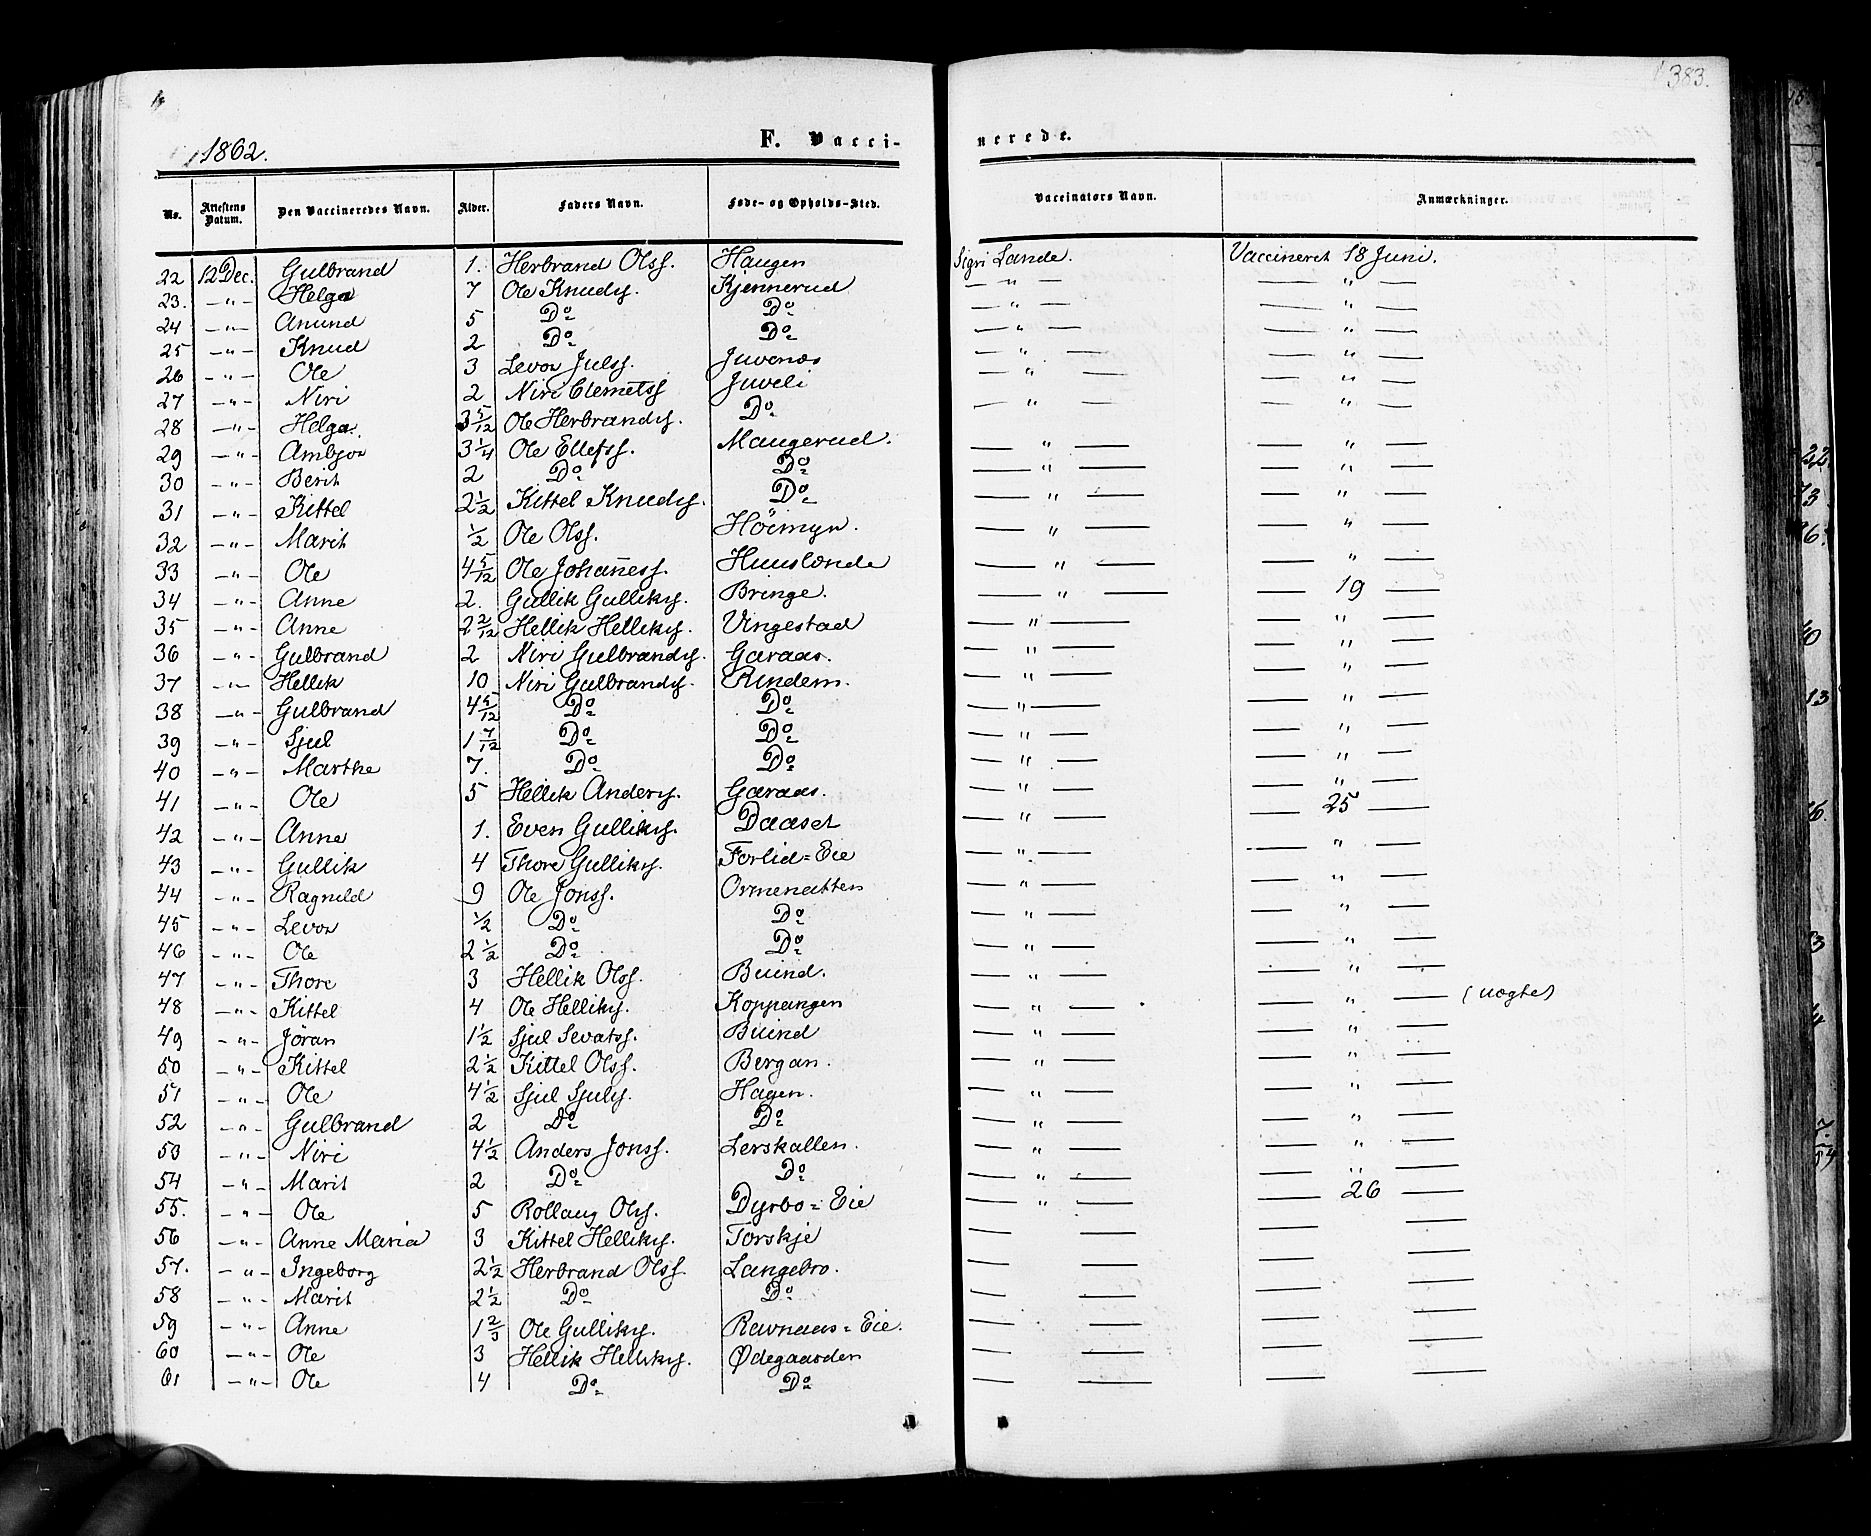 383.
1862.
F. Vacci-
nerede.
No. Attestens Datum. Den Vaccineredes Navn. Alder. Faders Navn. Føde- og Opholds-Sted. Vaccinatørs Navn. Anmærkninger.
22 12 Dec. Gulbrand 1. Herbrand Olss. Haugen Sigri Lande. Vaccineret 18 Juni.
23. —"— Helga 7 Ole Knuds. Kjennerud —"— —"—
24 —"— Anund 5 Do Do —"— —"—
25 —"— Knud 2 Do Do —"— —"—
26 —"— Ole 3 Levor Julss. Juvenæs —"— —"—
27 —"— Niri 2 Niri Clemetss Juveli —"— —"—
28 —"— Helga. 3 5/12 Ole Herbrands. Do —"— —"—
29 —"— Ambjør 3 1/4 Ole Ellefss. Maugerud. —"— —"—
30 —"— Berit 2 Do Do —"— —"—
31 —"— Kittel 2 1/2 Kittel Knuds. Do —"— —"—
32 —"— Marit 1/2 Ole Olss. Höimyr. —"— —"—
33 —"— Ole 4 5/12 Ole Johaness. Huuslænde —"— —"—
34 —"— Anne 2. Gullik Gulliks. Bringe. —"— — 19 —
35 —"— Anne 2 2/12 Hellik Helliks. Vingestad —"— —"—
36 —"— Gulbrand 2 Niri Gulbrands. Garaas. —"— —"—
37 —"— Hellik 10 Niri Gulbrands. Rindem. —"— —"—
38 —"— Gulbrand 4 5/12 Do Do —"— —"—
39 —"— Sjul 1 7/12 Do Do —"— —"—
40 —"— Marthe 7. Do Do —"— —"—
41 —"— Ole 5 Hellik Anders. Garaas. —"— —"—
42 —"— Anne 1. Even Gulliks. Daaset —"— — 25 —
43 —"— Gullik 4 Thore Gulliks. Forlid=Eie —"— —"—
44 —"— Ragnild 9 Ole Jonss. Ormenatten —"— —"—
45 —"— Levor 1/2 Do Do —"— —"—
46 —"— Ole 2 1/2 Do Do —"— —"—
47 —"— Thore 3 Hellik Olss. Buind. —"— —"—
48 —"— Kittel 4 Ole Helliks. Koppangen —"— —"— (uægte)
49 —"— Jöran 1 1/2 Sjul Sevatss. Buind —"— —"—
50 —"— Kittel 2 1/2 Kittel Olss. Bergan. —"— —"—
51 —"— Ole 4 1/2 Sjul Sjuls. Hagen. —"— —"—
52 —"— Gulbrand 2 Do Do —"— —"—
53 —"— Niri 4 1/2 Anders Jonss. Lerskallen. —"— —"—
54 —"— Marit 2 Do Do —"— —"—
55. —"— Ole 5 Rollaug Ols. Dyrbo=Eie —"— — 26 —
56 —"— Anne Maria 3 Kittel Helliks. Torskje — — — —
57. —"— Ingeborg 2 1/2 Herbrand Olss Langebro. — — — —
58 —"— Marit 2 1/2 Do Do — — — —
59 —"— Anne 1 2/3 Ole Gulliks. Ravnaas=Eie. — — — —
60 —"— Ole 3 Hellik Helliks. Ødegaarden — — — —
61 —"— Ole 4 Do Do — — — —